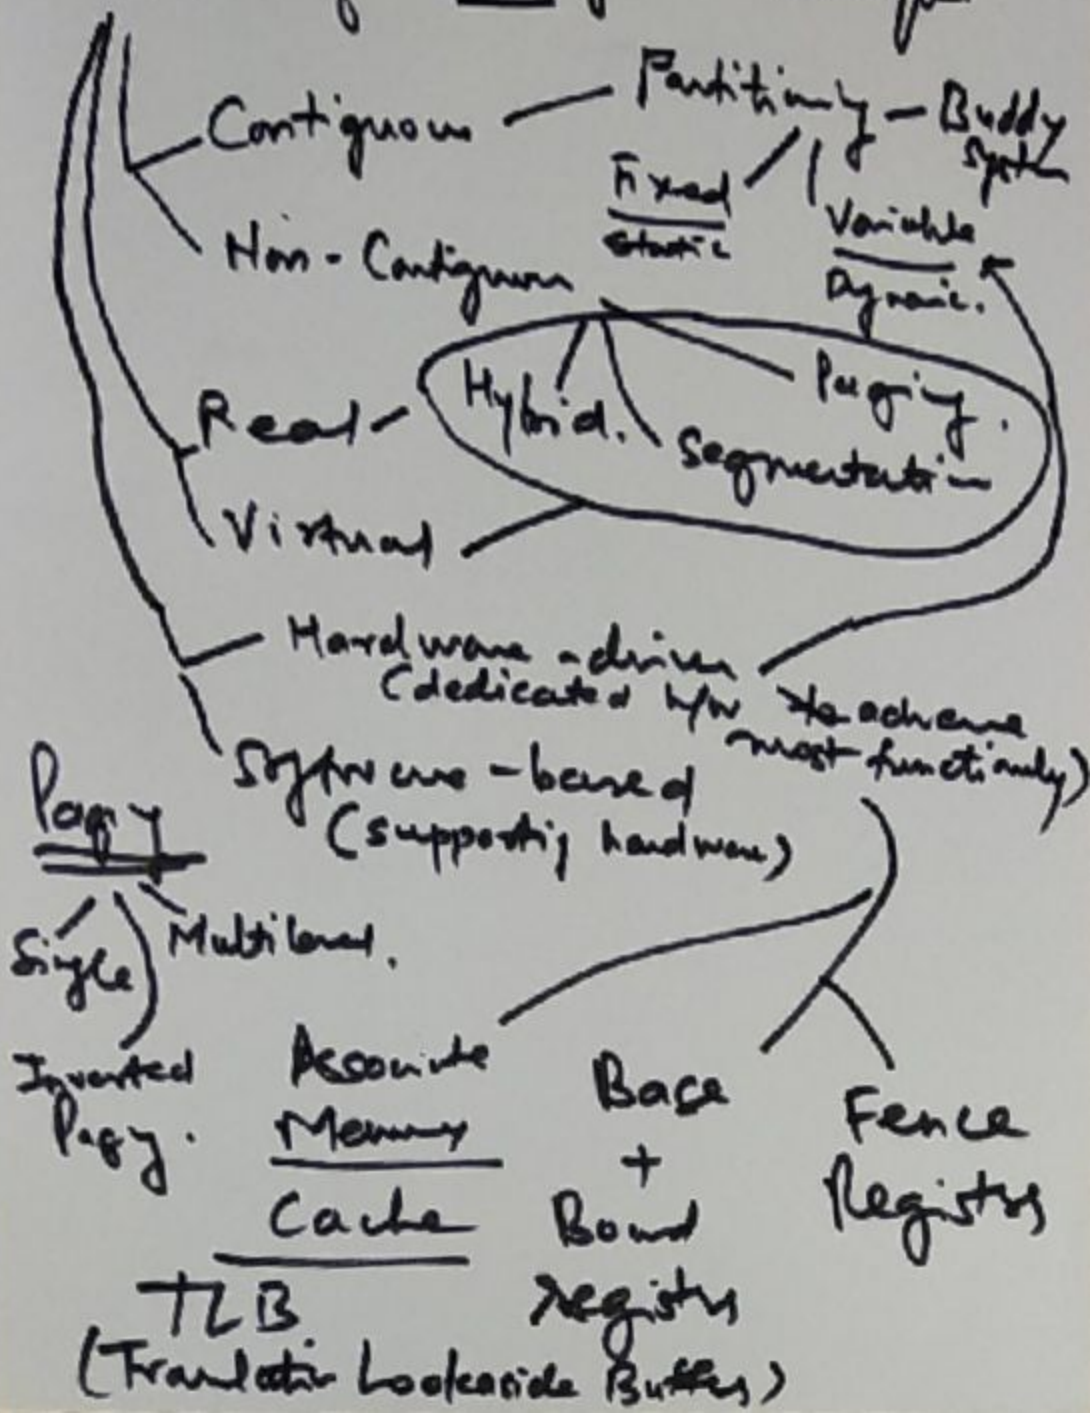 Contiguous — Partitioning — Buddy
System
Fixed
Static
Variable
Dynamic.
Non - Contiguous
Hybrid.
Paging.
Segmentation
Real
Virtual
Hardware - driven
(dedicated h/w to achieve
most functionality)
Software - based
(supporting hardware)
Paging
Single
Multilevel.
Inverted
Paging.
Associate
Memory
Cache
TLB
(Translation Lookaside Buffers)
Base
+
Bound
registers
Fence
Registers